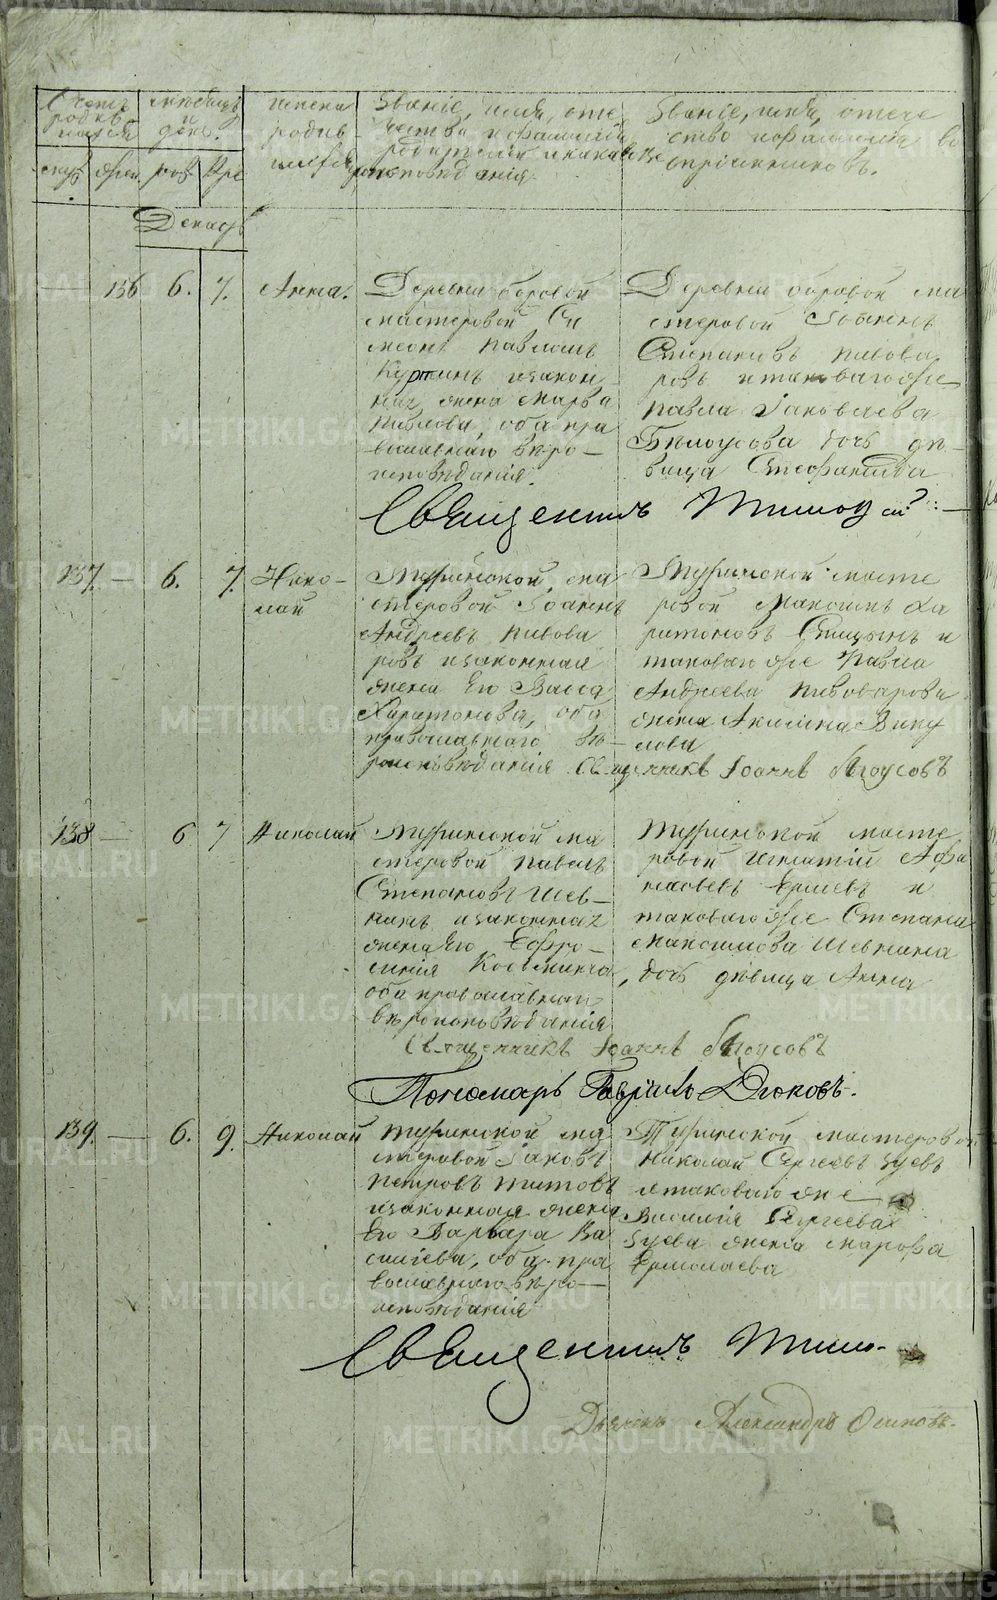 Счетъ родив-шихся
мѣсяцъ и день.
имена родив-шихся
Званіе, имя, оте-чество и фамилія родителей и какого вѣроисповѣданія.
Званіе, имя, отече ство и фамилія во спріемниковъ.
муж. жен. рож. Кре
Декабр
156 6. 7. Анна.
Деревни боровой
мастеровой Си
меонъ Павловъ
изакон
ная жена Марѳа
Павлова, оба пра
вославнаго вѣро-
исповѣданія.
Деревни боровой ма
стеровой Іоаннъ
Степановъ пивова
ровъ и таковагоже
Павла Іаковлева
Бѣлоусова дочь дѣ-
вица Стефанида
Священникъ
137. 6. 7. Нико-
лай
Туринской ма
стеровой Іоаннъ
Андреевъ пивова
ровъ изаконная
жена Его Васса
Харитонова, оба
православнаго вѣ-
роисповѣданія
Туринской масте
ровой Максимъ Ха
ритоновъ Спицынъ и
таковаго же Павла
Андреева пивоварова
жена Акилина Вику
лова
Священникъ Іоаннъ
138 6 7 Николай
Туринской ма
стеровой павелъ
Степановъ Шев-
нинъ изаконная
жена Его Ефро-
синія Космина,
оба православнаго
вѣроисповѣданія
Туринской масте
ровой Игнатій Афа
насьевъ и
таковагоже Степана
Максимова Шевнина
дочь дѣвица Анна
Священникъ Іоаннъ
Пономарь Гавріилъ Дюковъ.
139. 6. 9. Николай
Туринской ма
стеровой Іаковъ
Петровъ Титовъ
изаконная жена
Его Варвара Ва
силіева, оба пра
вославнаго вѣро-
исповѣданія
Туринской мастеровой
Николай Сергѣевъ Зуевъ
и таковаго же
Василія Сергеева
Зуева жена Марѳа
Ермолаева
Священникъ
Дьячекъ Александръ Осиповъ.
METRIKI.GASO-URAL.RU